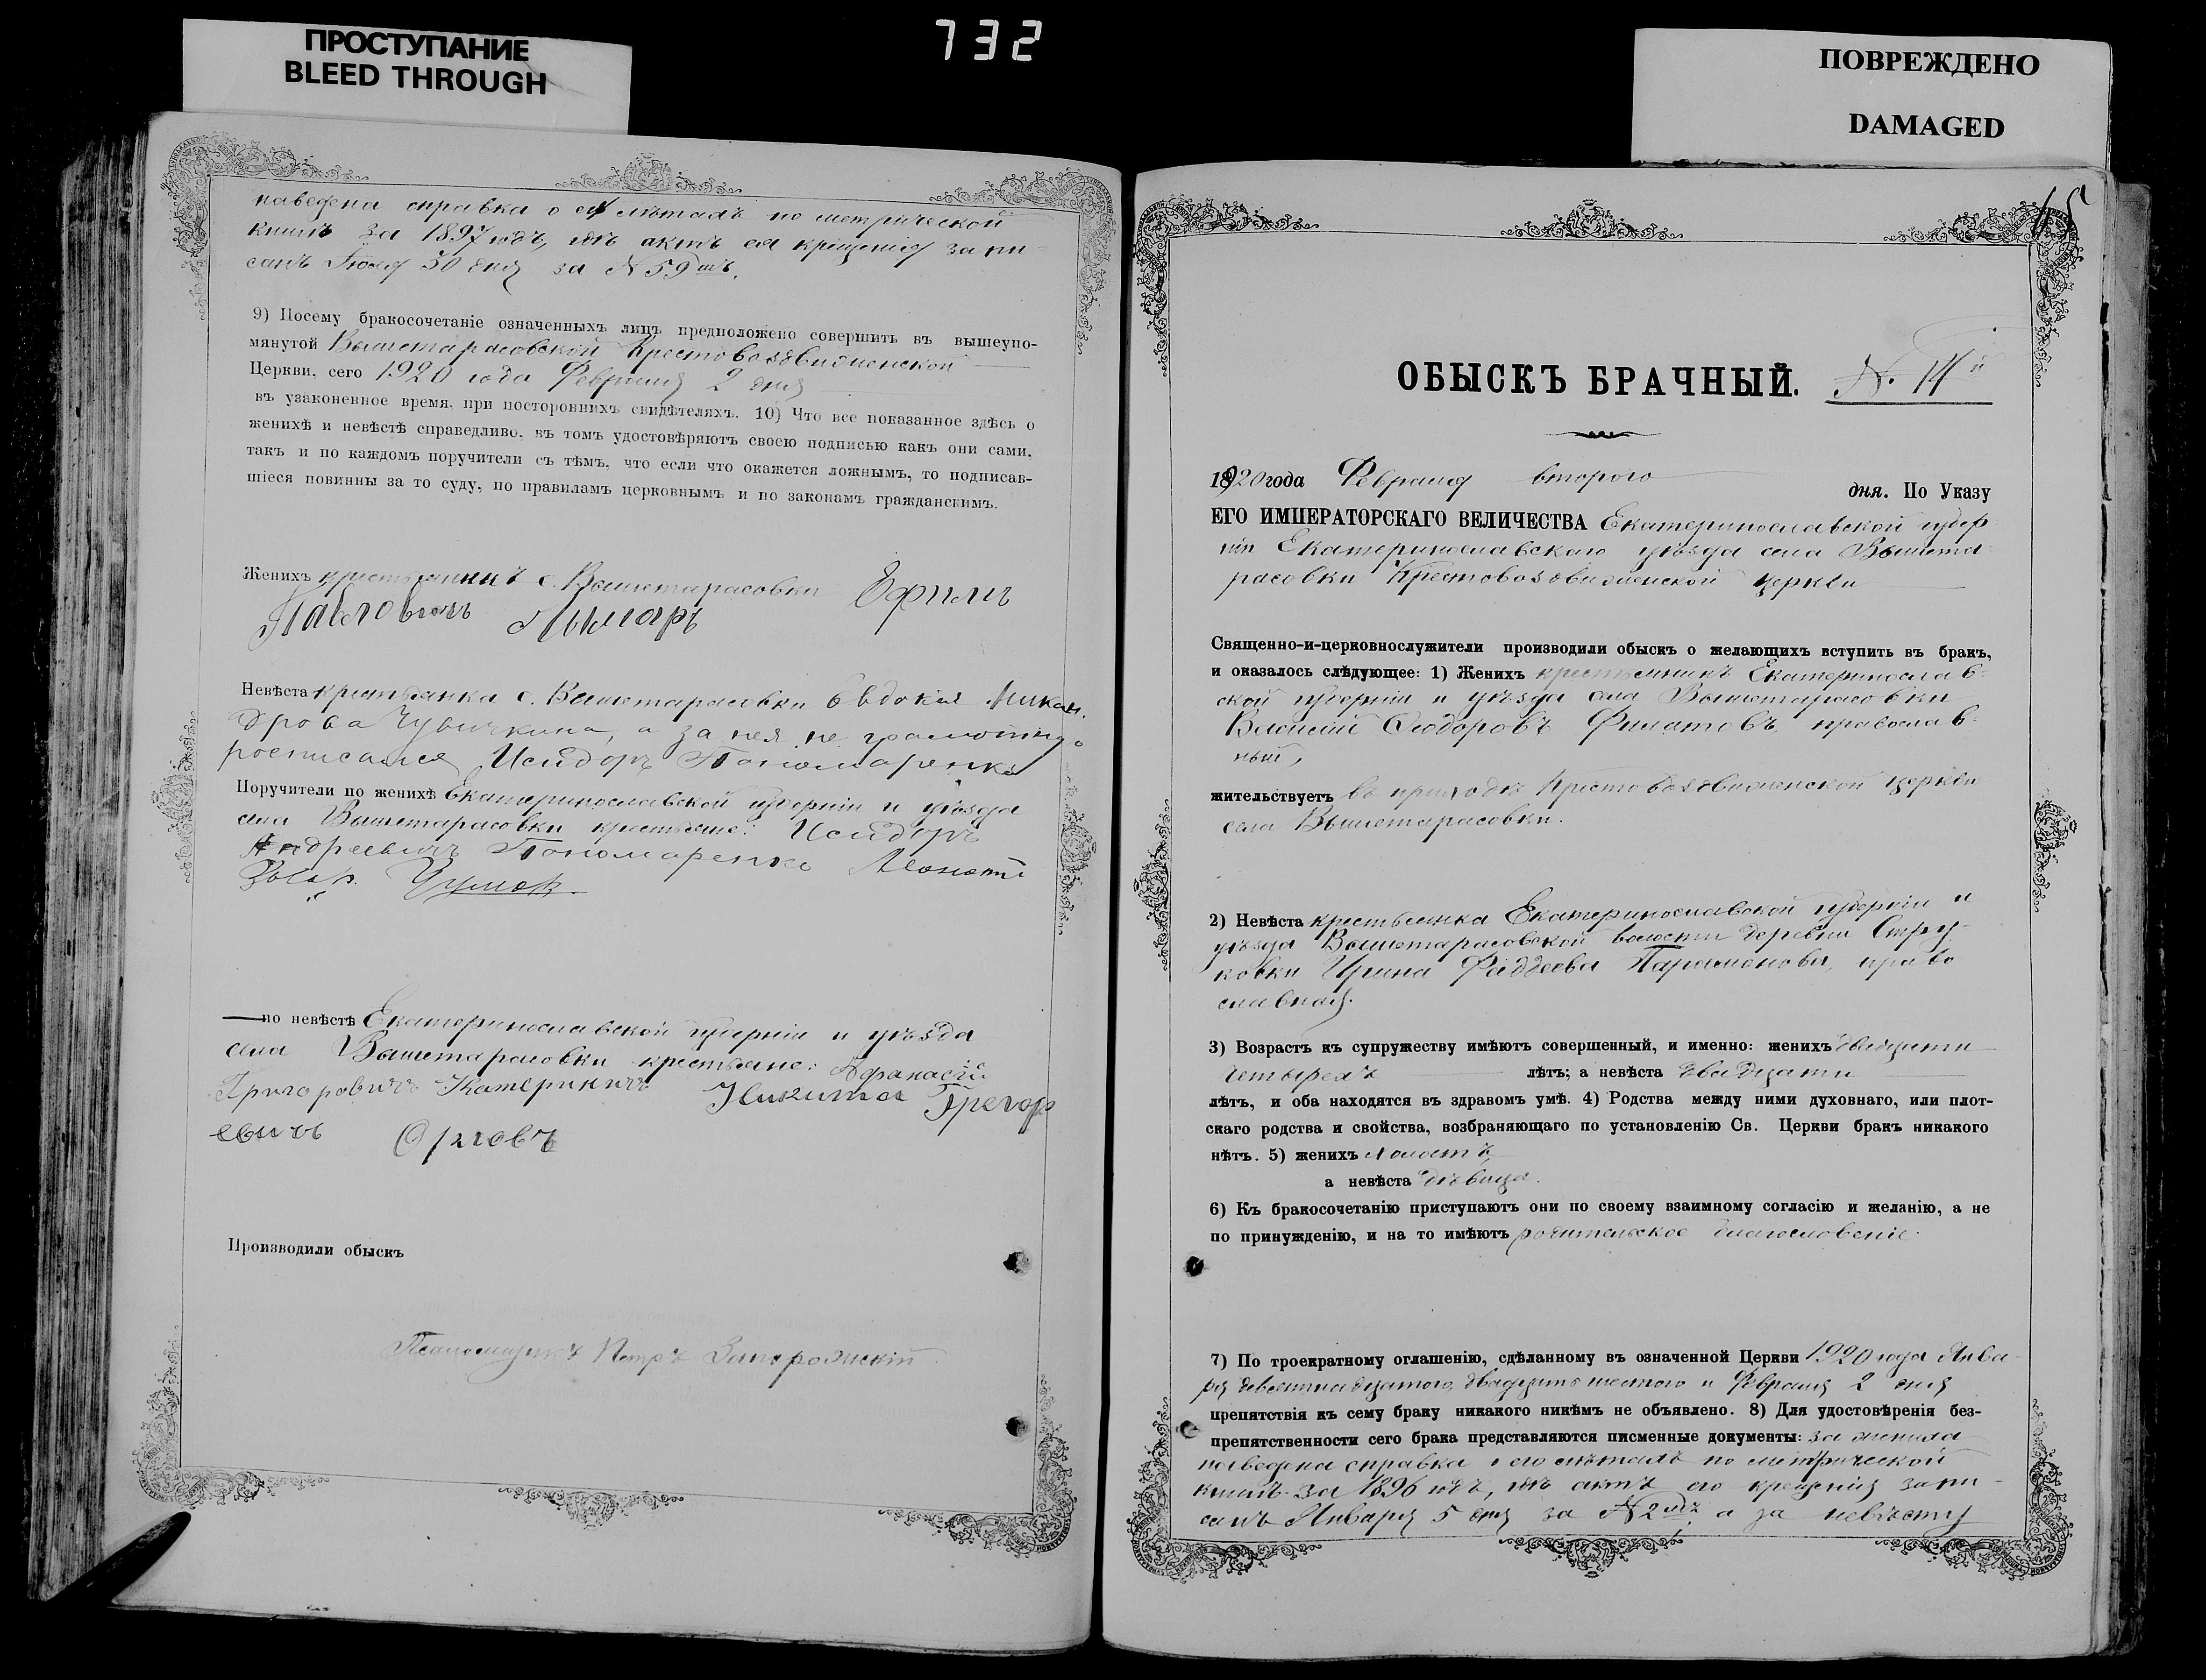 ПРОСТУПАНИЕ
BLEED THROUGH
732
ПОВРЕЖДЕНО
DAMAGED
наведена справка о ея лѣтахъ по метрической
книгѣ за 1897 годъ, гдѣ актъ ея крещенія запи
санъ Іюля 30 дня за № 59 мъ.
9) Посему бракосочетаніе означенныхъ лицъ предположено совершить въ вышеупо-
мянутой Вышетарасовской Крестовоздвиженской
Церкви, сего 1920 года Февраля 2 дня
въ узаконенное время, при постороннихъ свидѣтеляхъ. 10) Что все показанное здѣсь о
женихѣ и невѣстѣ справедливо, въ томъ удостовѣряютъ своею подписью какъ они сами,
такъ и по каждомъ поручители съ тѣмъ, что если что окажется ложнымъ, то подписав-
шіеся повинны за то суду, по правиламъ церковнымъ и по законамъ гражданскимъ.
Женихъ крестьянинъ с. Вышетарасовки Ефимъ
Павловичъ Лымарь
Невѣста крестьянка с. Вышетарасовки Евдокія Никан
дрова, а за нея не грамотну
росписался Исидоръ Пономаренко
Поручители по женихѣ Екатеринославской губерніи и уѣзда
села Вышетарасовки крестьяне: Исидоръ
Андреевичъ Пономаренко
по невѣстѣ Екатеринославской губерніи и уѣзда
села Вышетарасовки крестьяне: Афанасій
Григоровичъ Никита Грегор
евичъ Орловъ
Производили обыскъ
Псаломщикъ Петръ Запорожскій
15
ОБЫСКЪ БРАЧНЫЙ. № 14й
1920 года Февраля второго дня. По Указу
ЕГО ИМПЕРАТОРСКАГО ВЕЛИЧЕСТВА Екатеринославской губер
ніи Екатеринославскаго уѣзда села Вышета
расовки Крестовоздвиженской церкви
Священно-и-церковнослужители производили обыскъ о желающихъ вступить въ бракъ,
и оказалось слѣдующее: 1) Женихъ крестьянинъ Екатеринослав-
ской губерніи и уѣзда села Вышетарасовки
Ѳеодоровъ Филатовъ, православ-
ный,
жительствуетъ въ приходѣ Крестовоздвиженской церкви
села Вышетарасовки.
2) Невѣста крестьянка Екатеринославской губерніи и
уѣзда Вышетарасовской волости деревни Стрю-
ковки Ирина Фаддеева Парамонова, право
славная.
3) Возрастъ къ супружеству имѣютъ совершенный, и именно: женихъ двадцати
четырехъ лѣтъ; а невѣста двадцати
лѣтъ, и оба находятся въ здравомъ умѣ. 4) Родства между ними духовнаго, или плот-
скаго родства и свойства, возбраняющаго по установленію Св. Церкви бракъ никакого
нѣтъ. 5) женихъ холостъ,
а невѣста дѣвица.
6) Къ бракосочетанію приступаютъ они по своему взаимному согласію и желанію, а не
по принужденію, и на то имѣютъ родительское благословеніе.
7) По троекратному оглашенію, сдѣланному въ означенной Церкви 1920 года Янва-
ря девятнадцатого, двадцать шестого и Февраля 2 дня
препятствія къ сему браку никакого никѣмъ не объявлено. 8) Для удостовѣренія без-
препятственности сего брака представляются писменные документы: за жениха
наведена справка о его лѣтахъ по метрической
книгѣ за 1896 годъ, гдѣ актъ его крещенія запи-
санъ Января 5 дня за № 2 мъ, а за невѣсту